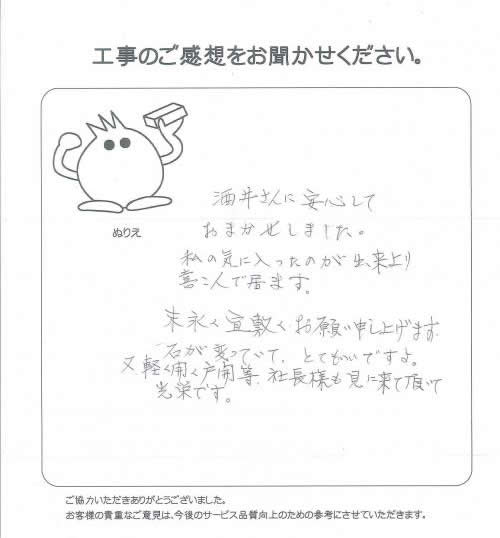 工事のご感想をお聞かせください。
ぬりえ
酒井さんに安心して
おまかせしました。
私の気に入ったのが出来上り
喜こんで居ます。
末永く宜敷くお願い申し上げます
石が変っていて、とてもいいですよ。
又軽く開く戸開等、社長様も見に来て頂いて
光栄です。
ご協力いただきありがとうございました。
お客様の貴重なご意見は、今後のサービス品質向上のための参考にさせていただきます。